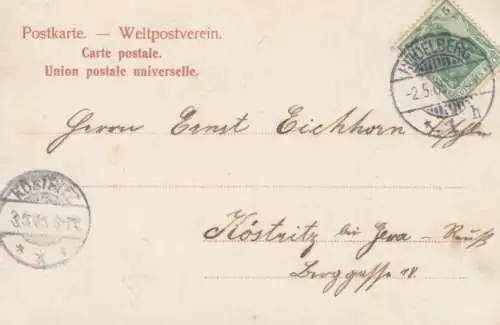 Postkarte. — Weltpostverein.
Carte postale.
Union postale universelle.
-2.5.0
h
Herrn Ernst Eichhorn
KÖSTRITZ
3.5.05
* * 1
Köstritz bei Gera - Reuß
Berggasse 18.